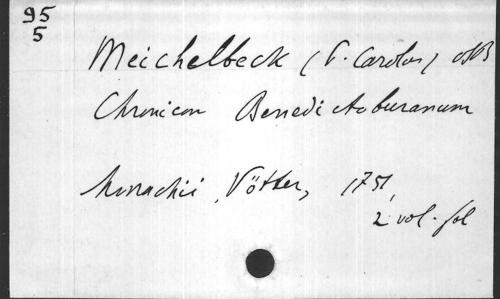 95
5
Meichelbeck (P. Carolus) OSB
Chronicon Benedictoburanum
Monachii, Vötter, 1751,
2 vol. fol